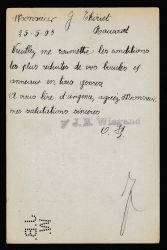 Monsieur J Thiriet
25-5-05 Beauvont
Veuillez me soumettre les conditions
les plus réduites de vos boucles et
anneaux en tous genres.
A vous lire d'urgence, agréez, Monsieur,
mes salutations sincères
pr J.B. Wiegand